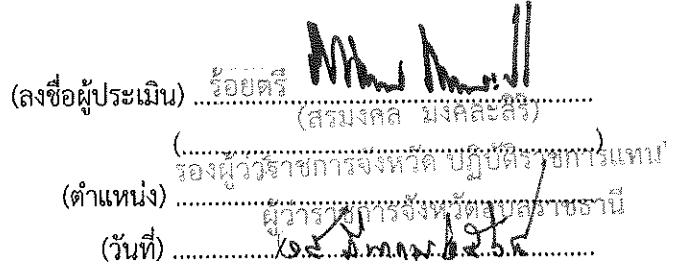 (ลงชื่อผู้ประเมิน) ร้อยตรี
(สรมงคล มงคละสิริ)
(....................................................)
รองผู้ว่าราชการจังหวัด ปฏิบัติราชการแทน
(ตำแหน่ง)
ผู้ว่าราชการจังหวัดอุบลราชธานี
(วันที่)